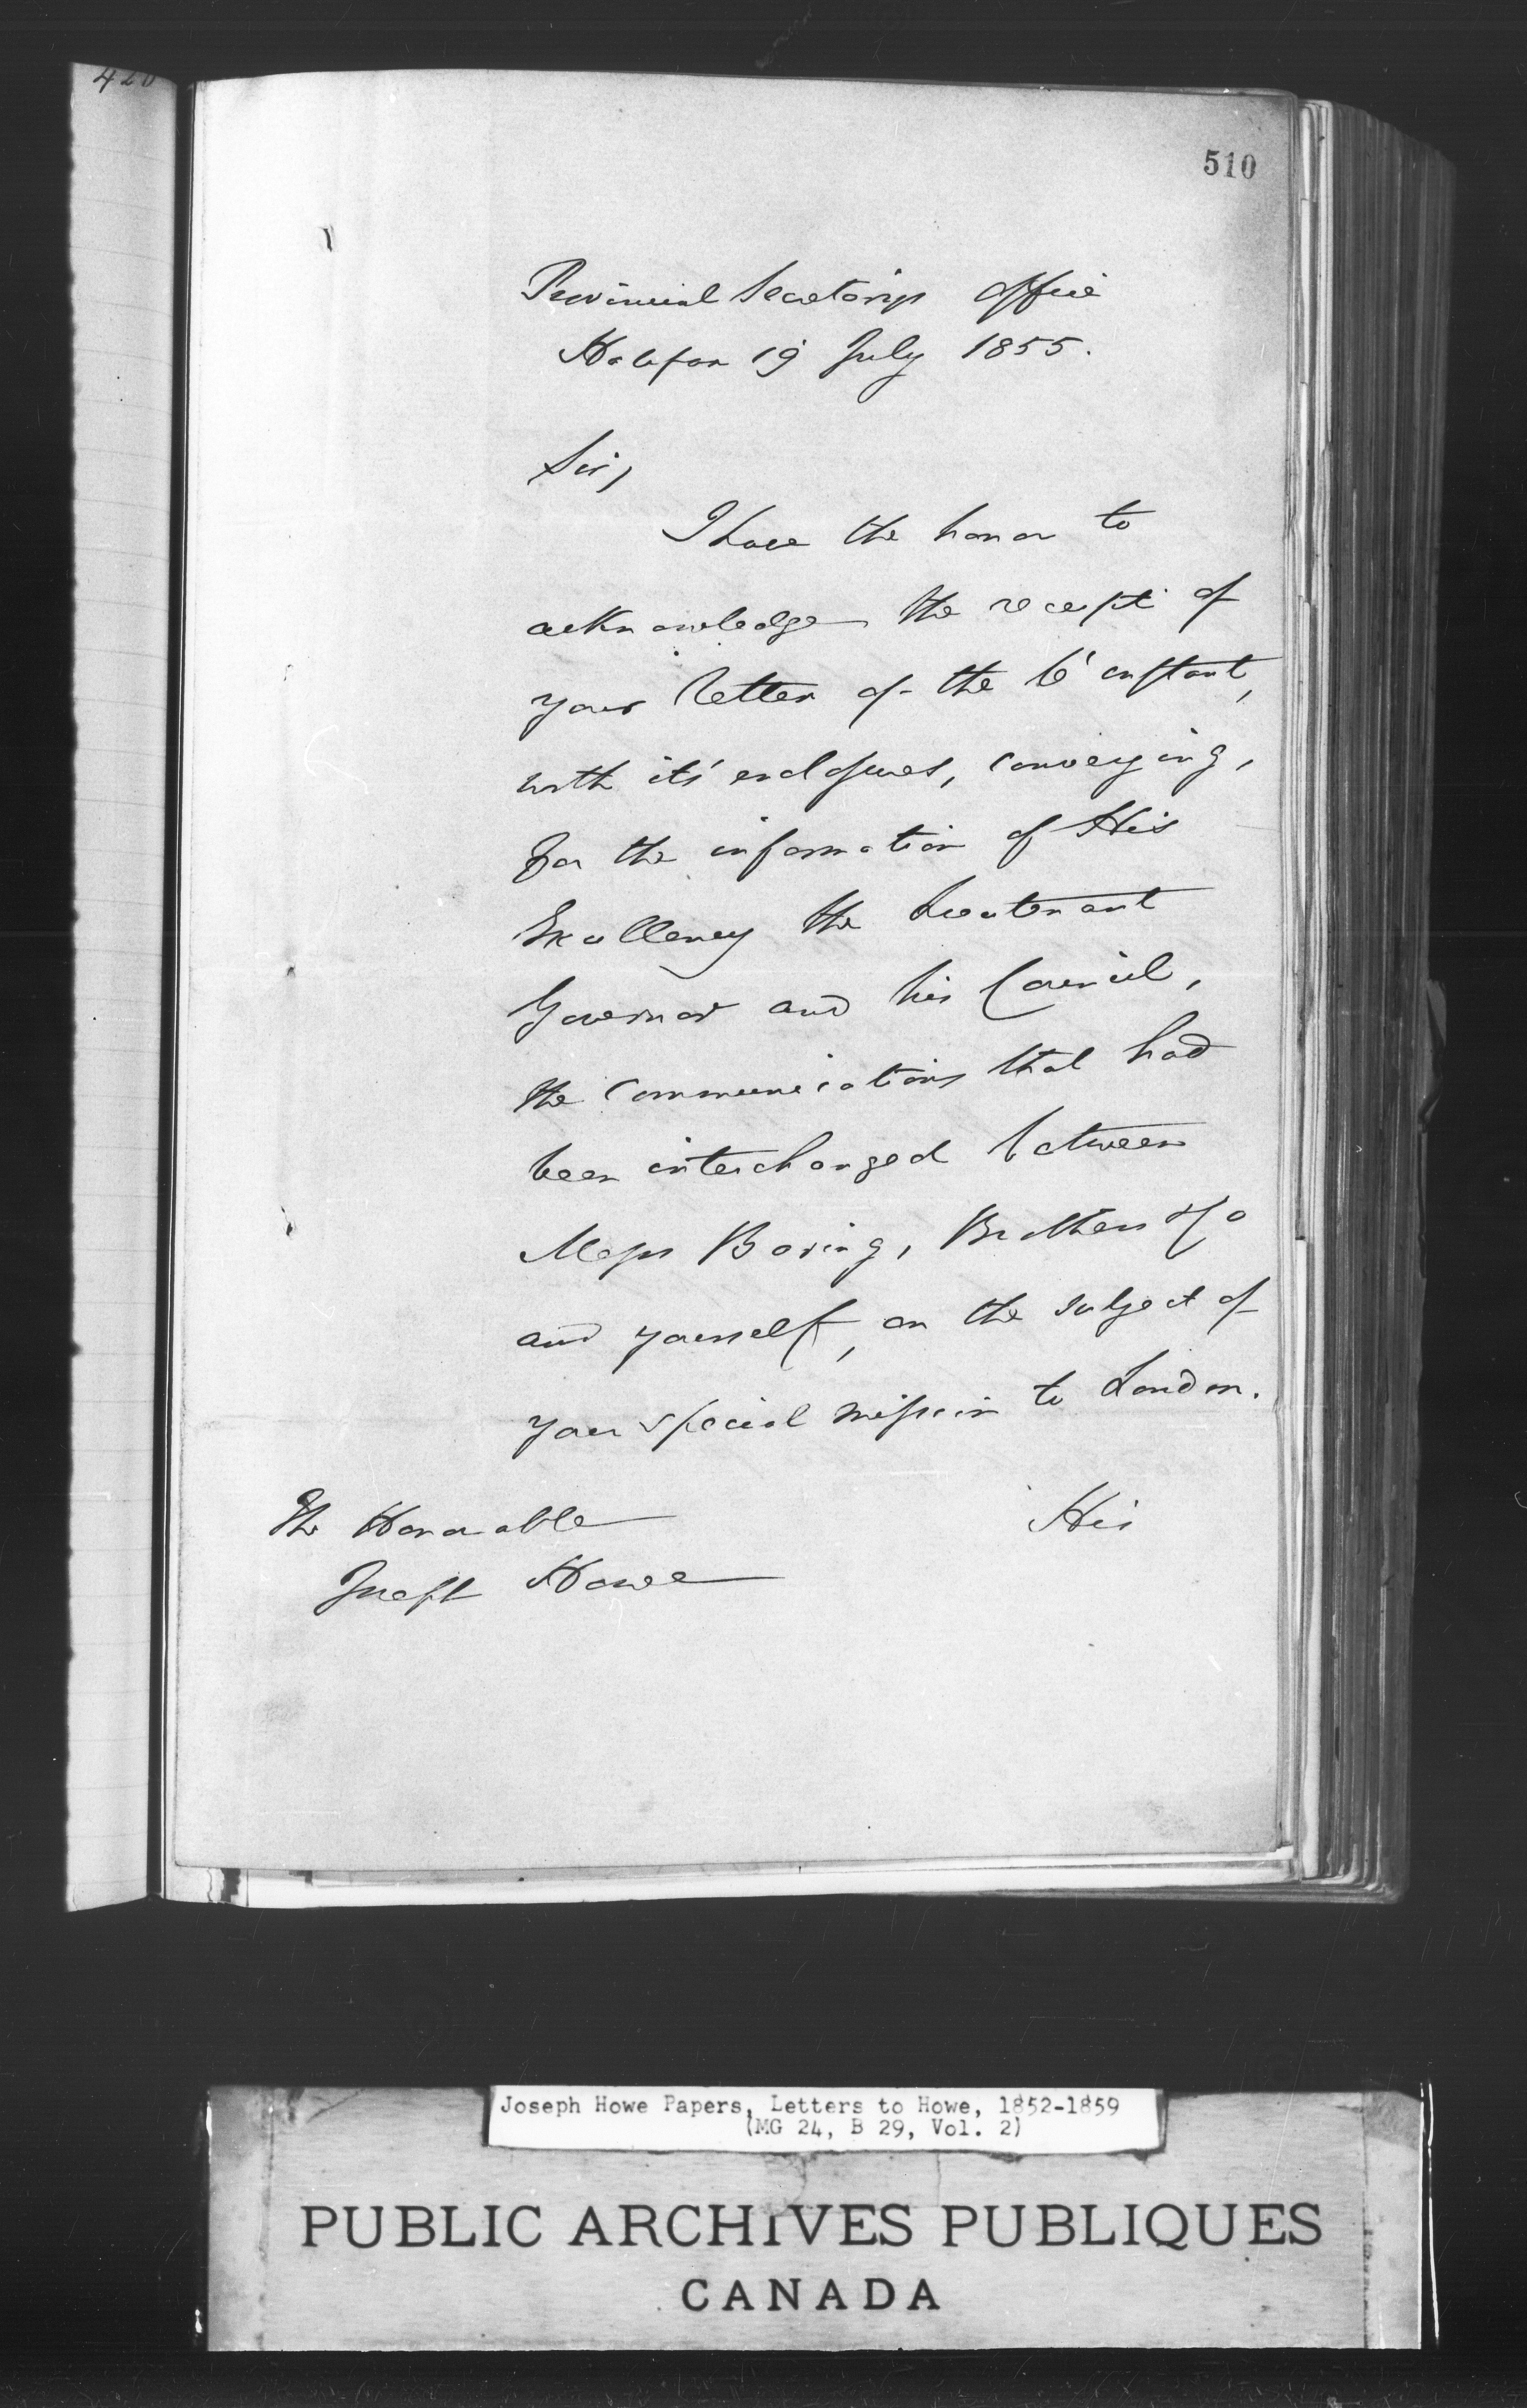 420
510
Provincial Secretarys Office
Halifax 19 July 1855.
Sir,
I have the honor to
acknowledge the receipt of
your letter of the 6' instant,
with its' enclosures, conveying,
for the information of His
Excellency the Lieutenant
Governor and his Council,
the communications that had
been interchanged between
Messrs Baring, Brothers & Co
and yourself, on the subject of
your special mission to London.
His
The Honorable
Joseph Howe
Joseph Howe Papers, Letters to Howe, 1852-1859
(MG 24, B 29, Vol. 2)
PUBLIC ARCHIVES PUBLIQUES
CANADA